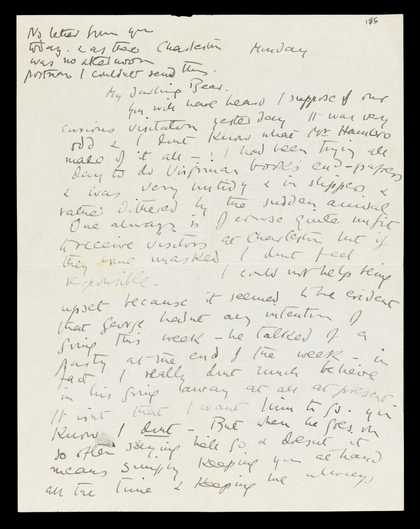 186
No letter from you
today. & as there Charleston Monday
was no afternoon
postman I couldn't send this.
My darling Bear.
You will have heard I suppose of our
curious visitation yesterday. It was very
odd & I dont know what Mr.
made of it all – ! I had been trying all
day to do Virginias books end-papers
& was very untidy & in slippers &
rather dithered by the sudden arrival
One always is of course quite unfit
to receive visitors at Charleston but if
they come unasked I dont feel
responsible. I could not help being
upset because it seemed to be evident
that George hadnt any intention of
going this week – he talked of a
party at the end of the week – in
fact I really dont much believe
in his going away at all at present
It isnt that I want him to go. you
know I dont – But when he goes on
so often saying hell go & doesnt it
means simply keeping you at hand
all the time & keeping me